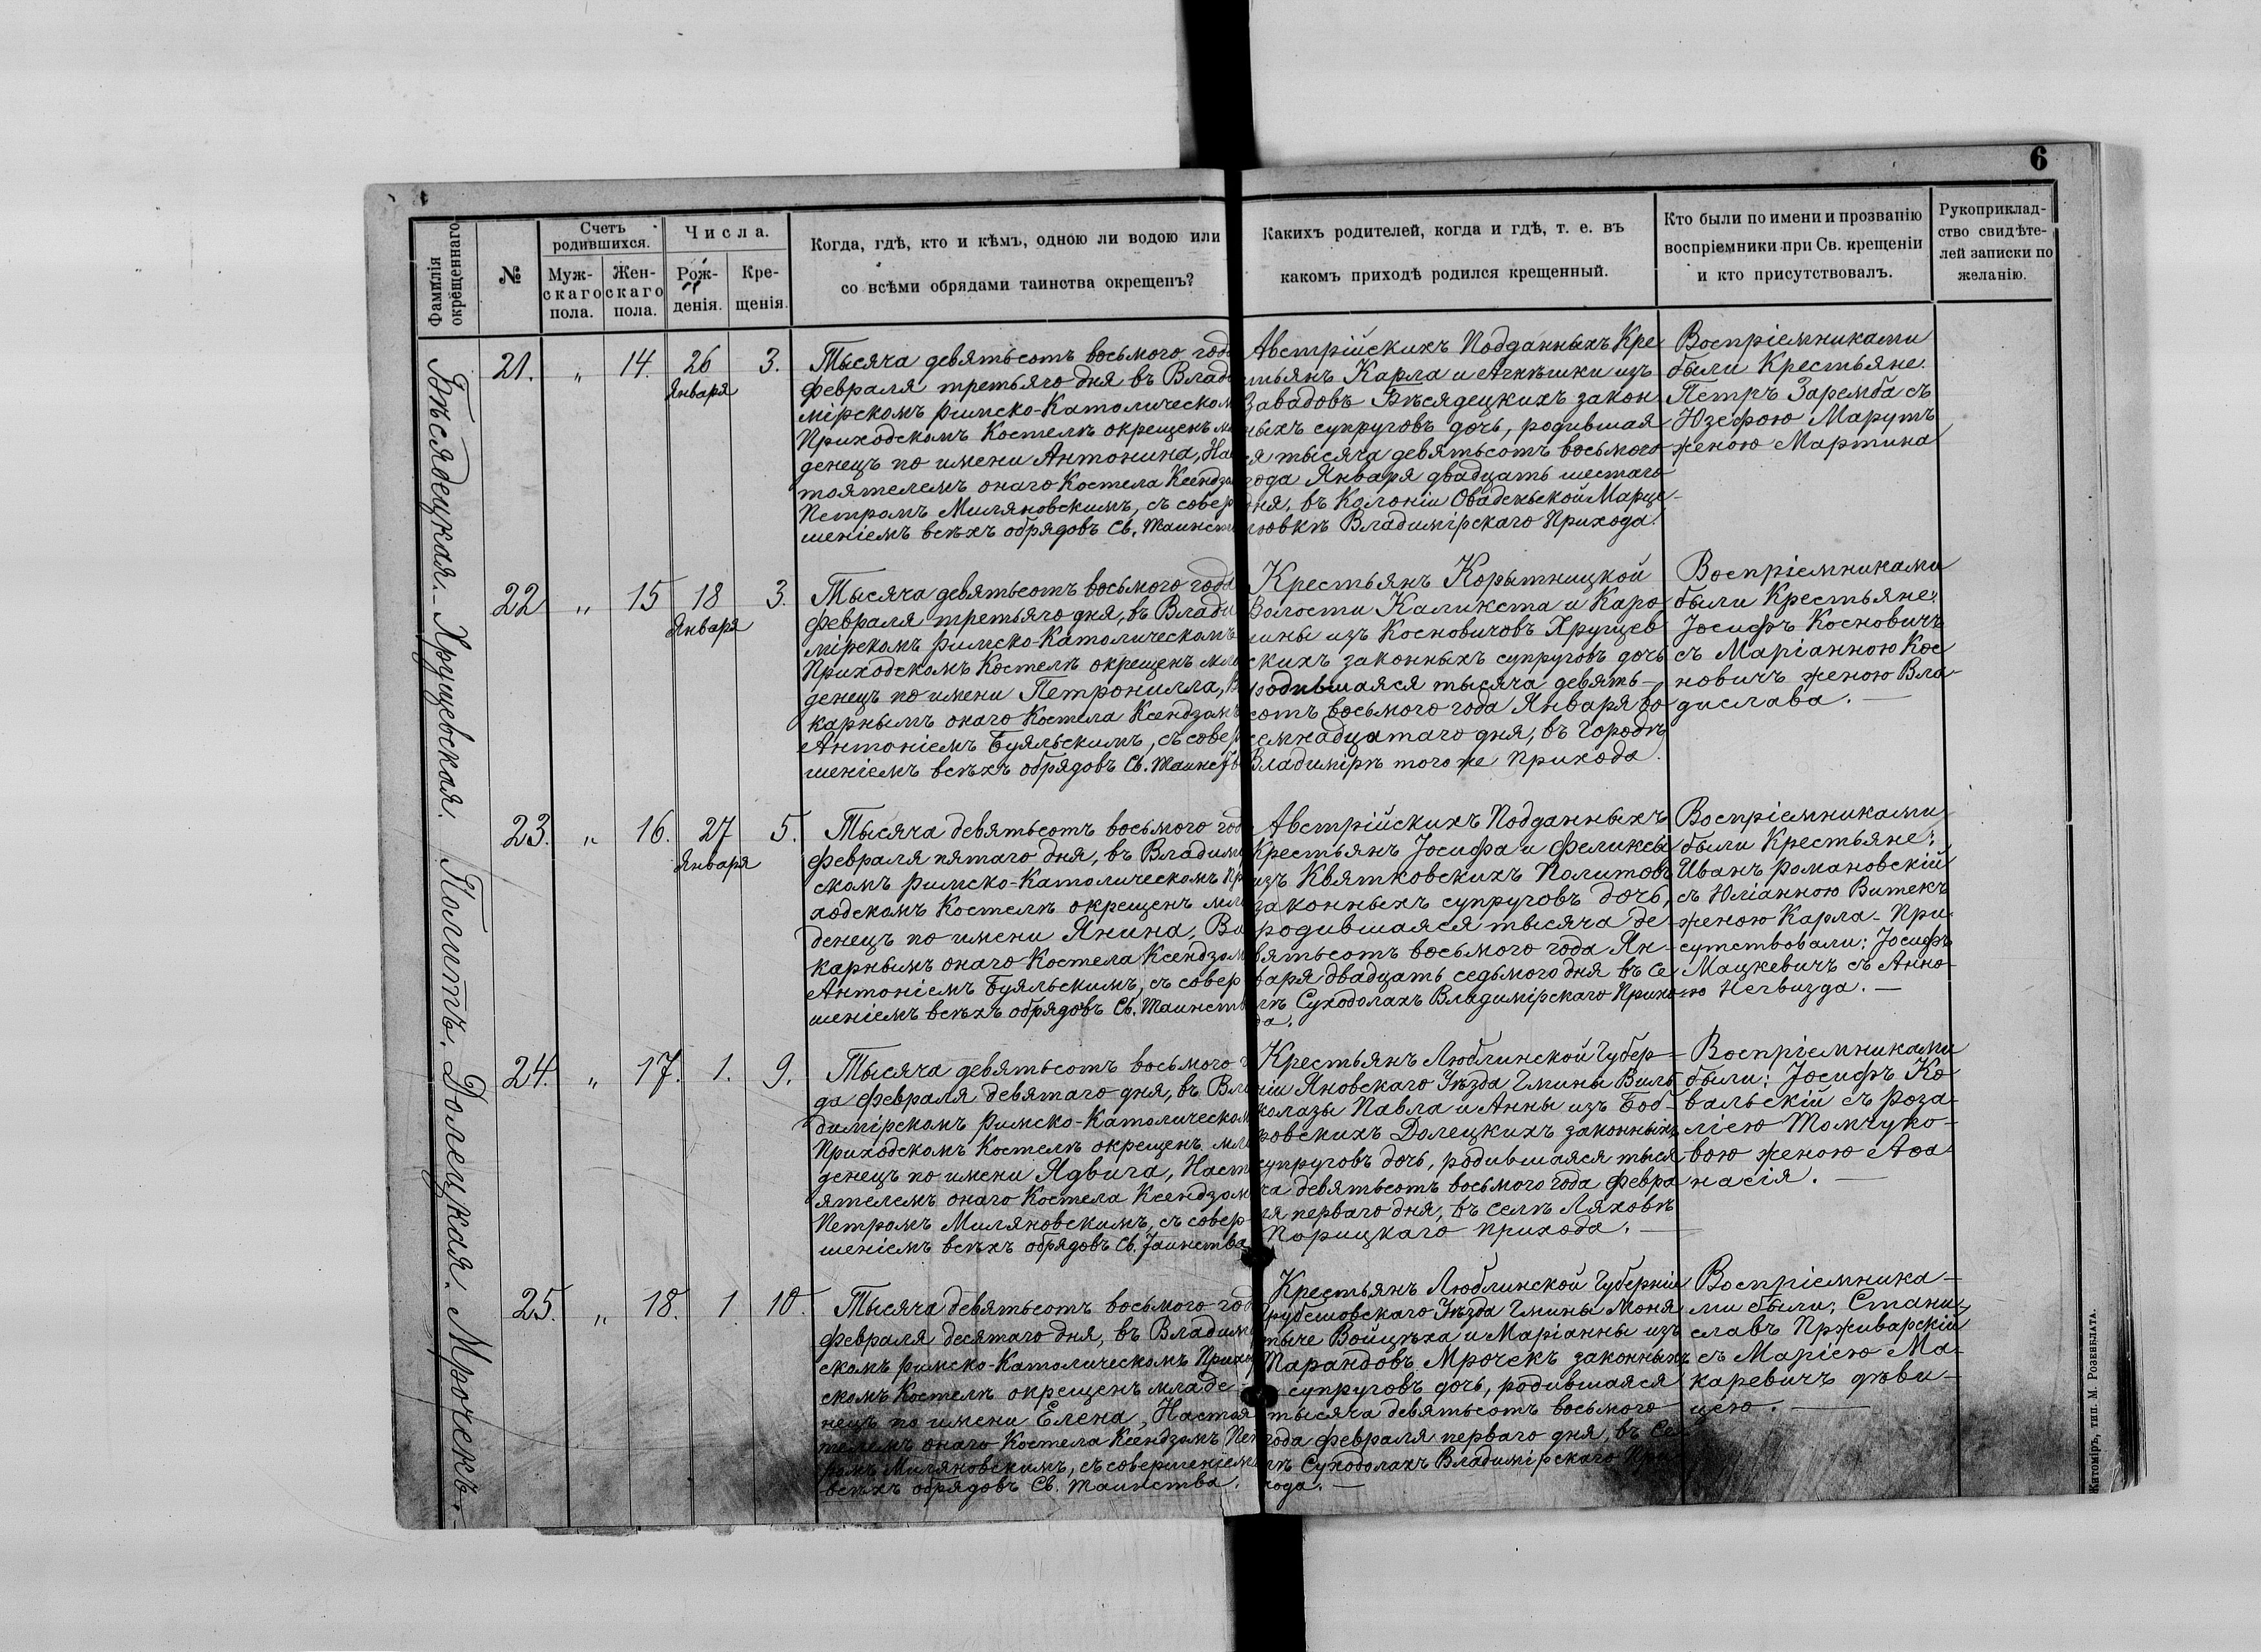 6
Фамилія окрещеннаго
№
Счетъ родившихся.
Мужскаго пола.
Женскаго пола.
Числа.
Рожденія.
Крещенія.
Когда, гдѣ, кто и кѣмъ, одною ли водою или
со всѣми обрядами таинства окрещенъ?
Какихъ родителей, когда и гдѣ, т. е. въ
какомъ приходѣ родился крещенный.
Кто были по имени и прозванію
воспріемники при Св. крещеніи
и кто присутствовалъ.
Рукоприклад-
ство свидѣте-
лей записки по
желанію.
Бѣсядецкая.
21. " 14. 26 Января 3.
Тысяча девятьсотъ восьмого года
февраля третьяго дня въ Влади
мірскомъ римско-Католическом
Приходскомъ Костелѣ окрещенъ мла
денецъ по имени Антонина, Нас
тоятелемъ онаго Костела Ксендзом
Петромъ Миляновскимъ, съ совер
шеніемъ всѣхъ обрядовъ Св. Таинст
Австрійскихъ Подданныхъ Кре
стьянъ Карла и Агнѣшки изъ
Завадовъ Бѣсядецкихъ закон
ныхъ супруговъ дочь, родившая
ся тысяча девятьсотъ восьмого
года Января двадцать шестаго
дня, въ Колоніи Овадненской Марце-
ловкѣ Владимірскаго Прихода.
Воспріемниками
были Крестьяне:
Петръ Заремба съ
Юзефою Марутъ
женою Мартина
Хрущевская.
22 " 15 18 Января 3.
Тысяча девятьсотъ восьмого года
февраля третьяго дня, въ Влади
мірскомъ римско-Католическомъ
Приходскомъ Костелѣ окрещенъ мла
денецъ по имени Петронилла, В
карнымъ онаго Костела Ксендзомъ
Антоніемъ Буяльскимъ, съ совер
шеніемъ всѣхъ обрядовъ Св. Таинств
Крестьянъ Корытницкой
Волости Каликста и Каро
лины изъ Косновичовъ Хрущев
скихъ законныхъ супруговъ дочь
родившаяся тысяча девять-
сотъ восьмого года Января во
семнадцатаго дня, въ Городѣ
Владимірѣ того же Прихода.
Воспріемниками
были Крестьяне:
Іосифъ Косновичъ
съ Маріанною Кос
новичъ женою Вла
дислава. —
Политъ.
23. " 16. 27 Января 5.
Тысяча девятьсотъ восьмого год
февраля пятаго дня, въ Владимі
скомъ римско-Католическомъ Пр
ходскомъ Костелѣ окрещенъ мла
денецъ по имени Янина, Ви
карнымъ онаго Костела Ксендзом
Антоніемъ Буяльскимъ, съ совер
шеніемъ всѣхъ обрядовъ Св. Таинств
Австрійскихъ Подданныхъ
Крестьянъ Іосифа и Феликсы
изъ Квятковскихъ Политовъ
законныхъ супруговъ дочь,
родившаяся тысяча де-
вятьсотъ восьмого года Ян-
варя двадцать седьмого дня въ Се
лѣ Суходолахъ Владимірскаго Прихо
да.
Воспріемниками
были Крестьяне:
Иванъ Романовскій
съ Юліанною Витекъ
женою Карла - При
сутствовали: Іосифъ
Мацкевичъ съ Анно-
ю Негвизда. —
Долецкая.
24. " 17. 1. 9.
Тысяча девятьсотъ восьмого г
да февраля девятаго дня, въ Вла
димірскомъ Римско-Католическом
Приходскомъ Костелѣ окрещенъ мла
денецъ по имени Ядвига, Наст
ятелемъ онаго Костела Ксендзом
Петромъ Миляновскимъ, съ совер-
шеніемъ всѣхъ обрядовъ Св. Таинства
Крестьянъ Люблинской Губер-
ніи Яновскаго Уѣзда Гмины Виль
колазы Павла и Анны изъ Боб-
ровскихъ Долецкихъ законныхъ
супруговъ дочь, родившаяся тыся
ча девятьсотъ восьмого года Февра
ля перваго дня, въ селѣ Ляховѣ
Порицкаго прихода. —
Воспріемниками
были: Іосифъ Ко
вальскій съ Роза-
ліею Томчуко-
вою женою Аѳа
насія. —
Мрочекъ.
25. " 18. 1 10.
Тысяча девятьсотъ восьмого год
февраля десятаго дня, въ Владимі
скомъ римско-Католическомъ Прихо
скомъ Костелѣ окрещенъ младе-
нецъ по имени Елена, Настоя
телемъ онаго Костела Ксендзомъ Пет
ромъ Миляновскимъ, съ совершеніем
всѣхъ обрядовъ Св. Таинства.
Крестьянъ Люблинской Губерніи
Грубешовскаго Уѣзда Гмины Моня
тыче Войцѣха и Маріанны изъ
Тарандовъ Мрочекъ законныхъ
супруговъ дочь, родившаяся
тысяча девятьсотъ восьмого
года февраля перваго дня, въ Се
лѣ Суходолахъ Владимірскаго При
хода. —
Воспріемника-
ми были: Стани-
славъ Прживарскій
съ Маріею Ма-
каревичъ дѣви-
цею. —
Житоміръ, тип. М. Розенблата.